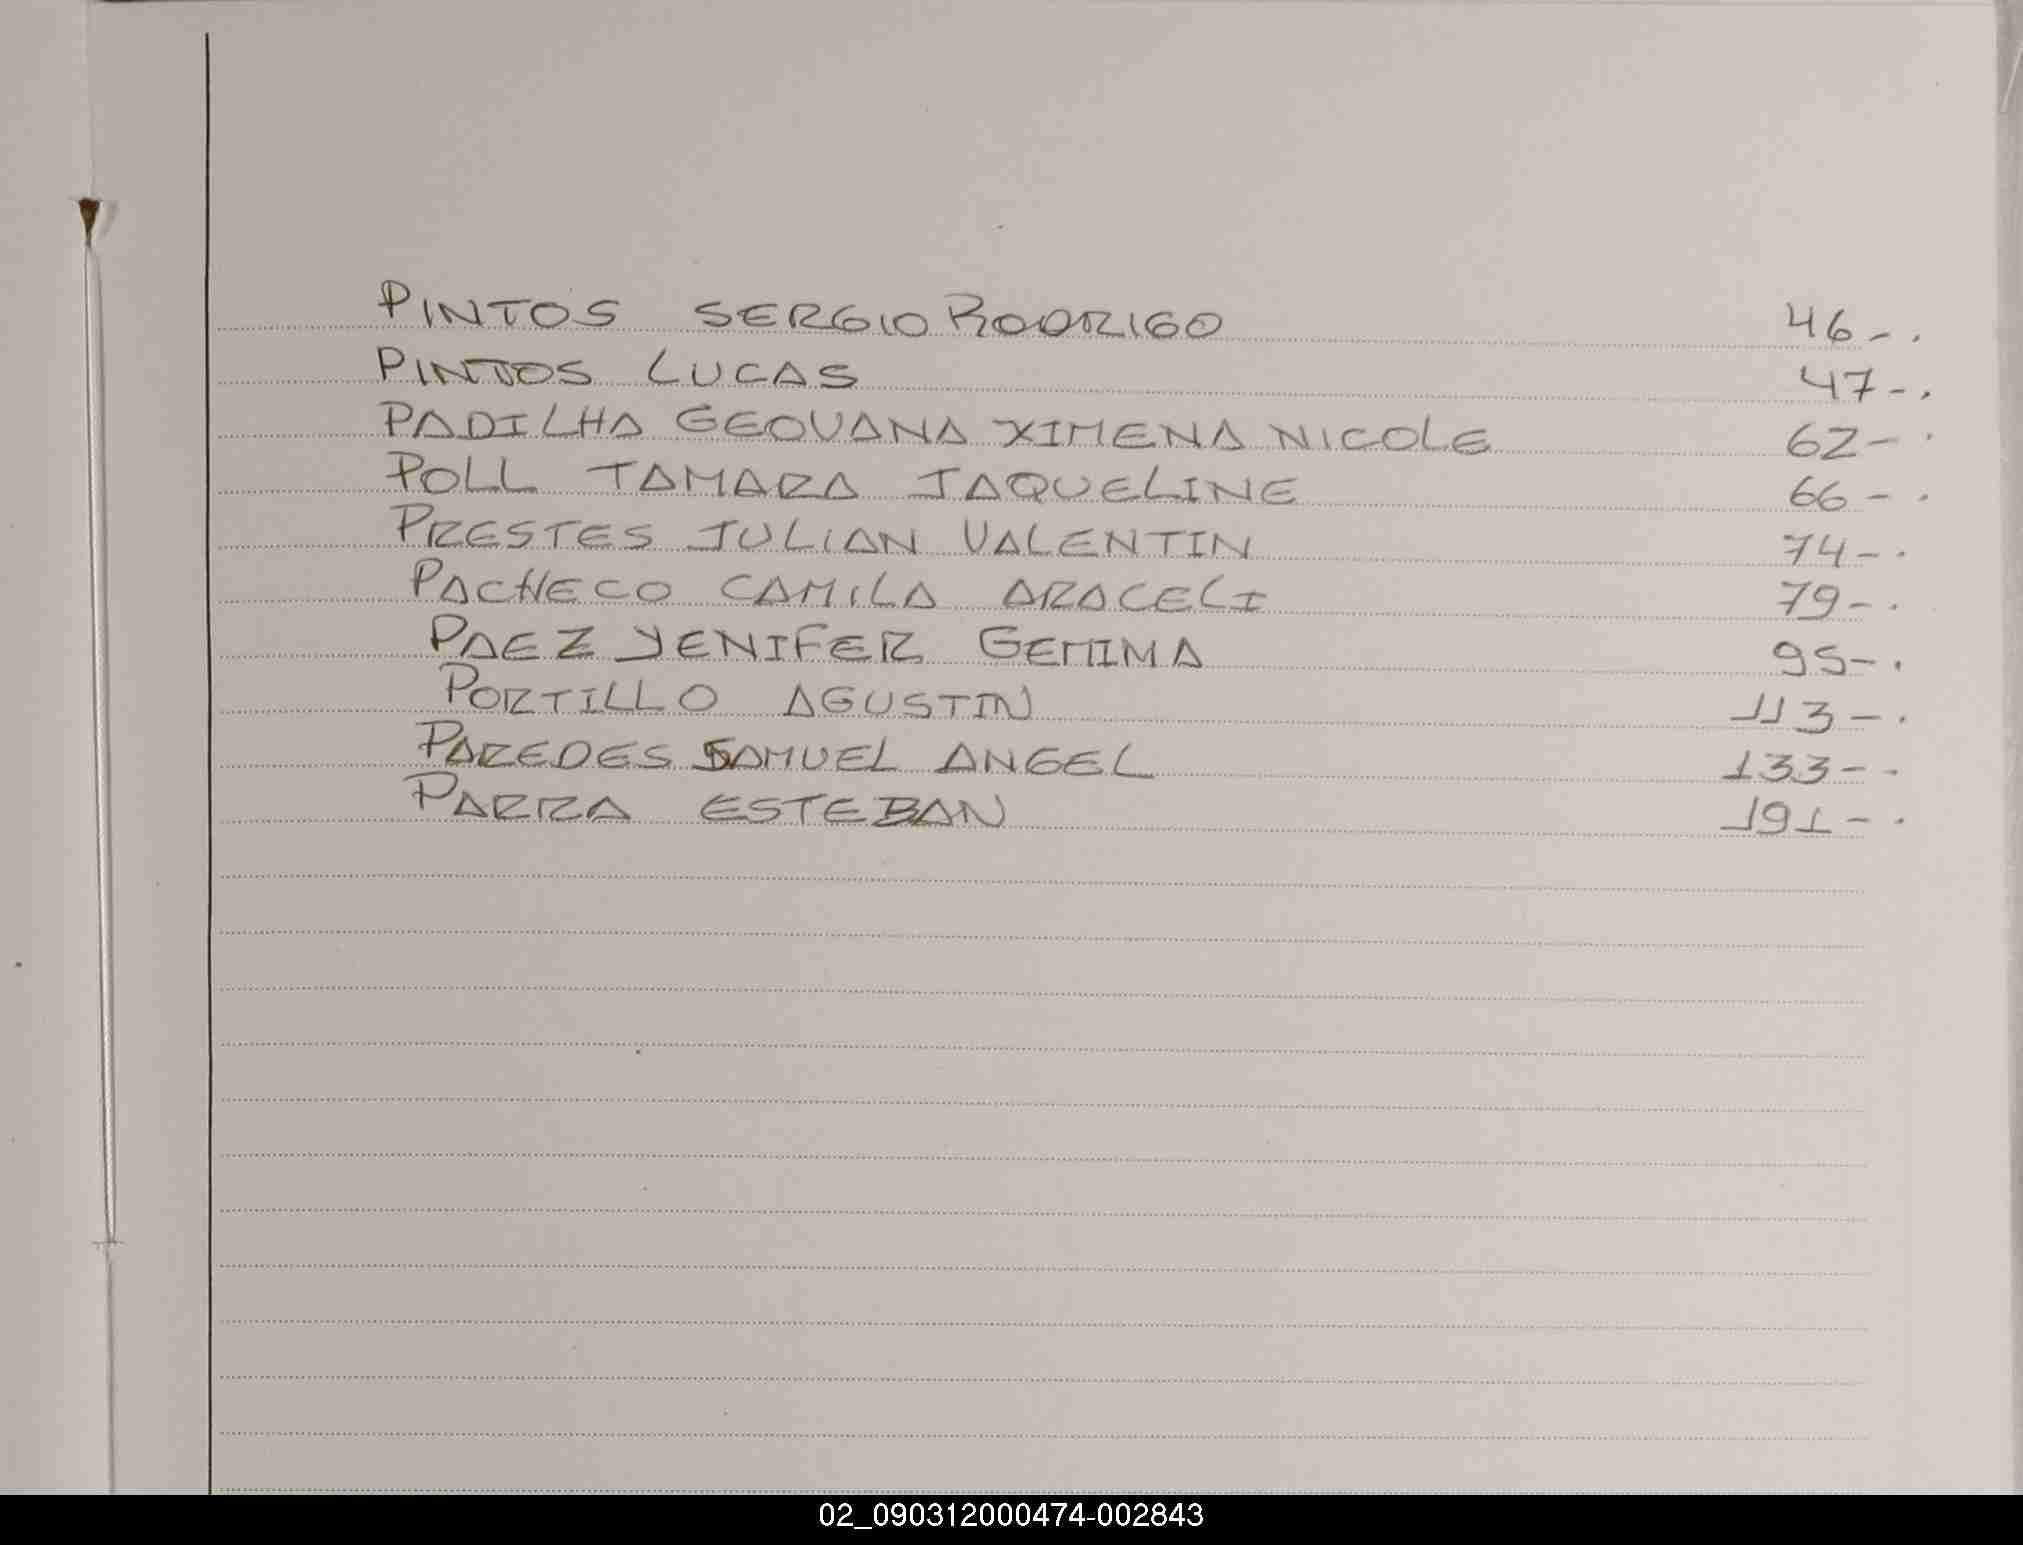 PINTOS SERGIO RODRIGO 46-.
PINTOS LUCAS 47-.
PADILHA GEOVANA XIMENA NICOLE 62-.
POLL TAMARA JAQUELINE 66-.
PRESTES JULIAN VALENTIN 74-.
PACHECO CAMILA ARACELI 79-.
PAEZ YENIFER GEMIMA 95-.
PORTILLO AGUSTIN 113-.
PAREDES SAMUEL ANGEL 133-.
PARRA ESTEBAN 191-.
02_090312000474-002843